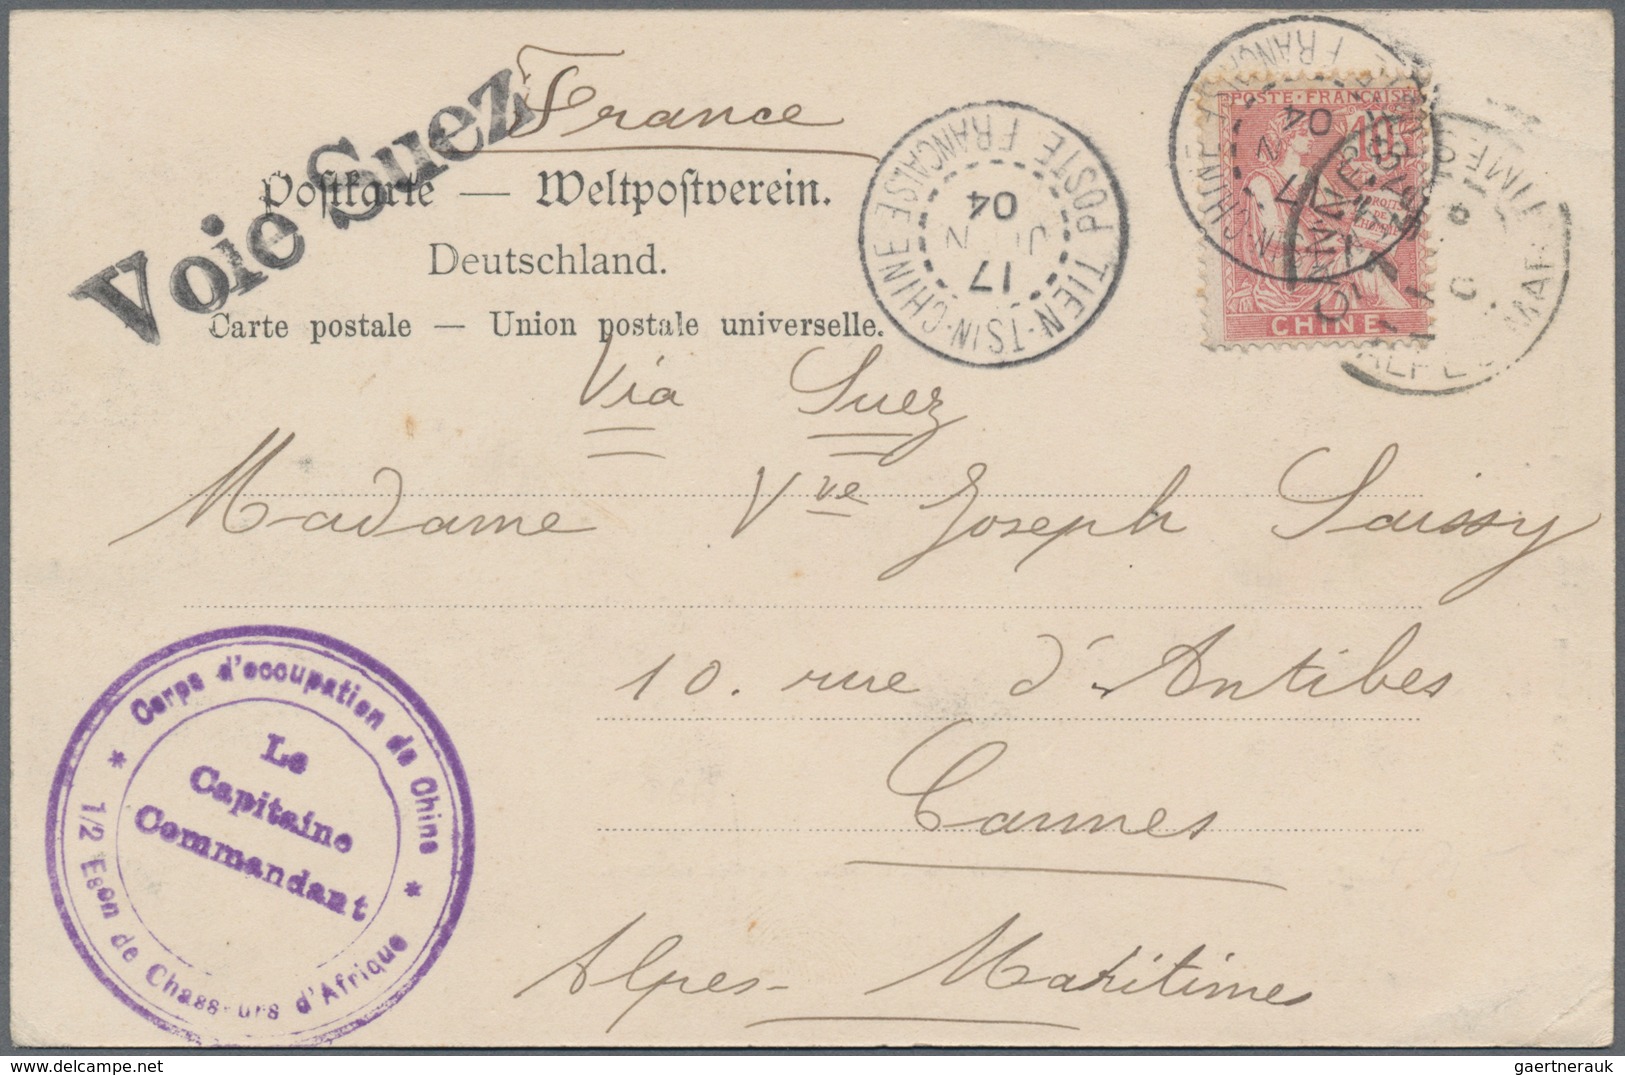 France
Voie Suez
Postkarte — Weltpostverein.
Deutschland.
Carte postale — Union postale universelle.
TIEN-TSIN-CHINE
POSTE FRANCAISE
17
JUIN
04
POSTE FRANÇAISE
10
CHINE
17
04
CANNES
Via Suez
Madame Vve Joseph Saissy
10. rue d'Antibes
Cannes
Alpes-Maritimes
Corps d'occupation de Chine
Le
Capitaine
Commandant
1/2 Eson de Chasseurs d'Afrique
gaertnerauk